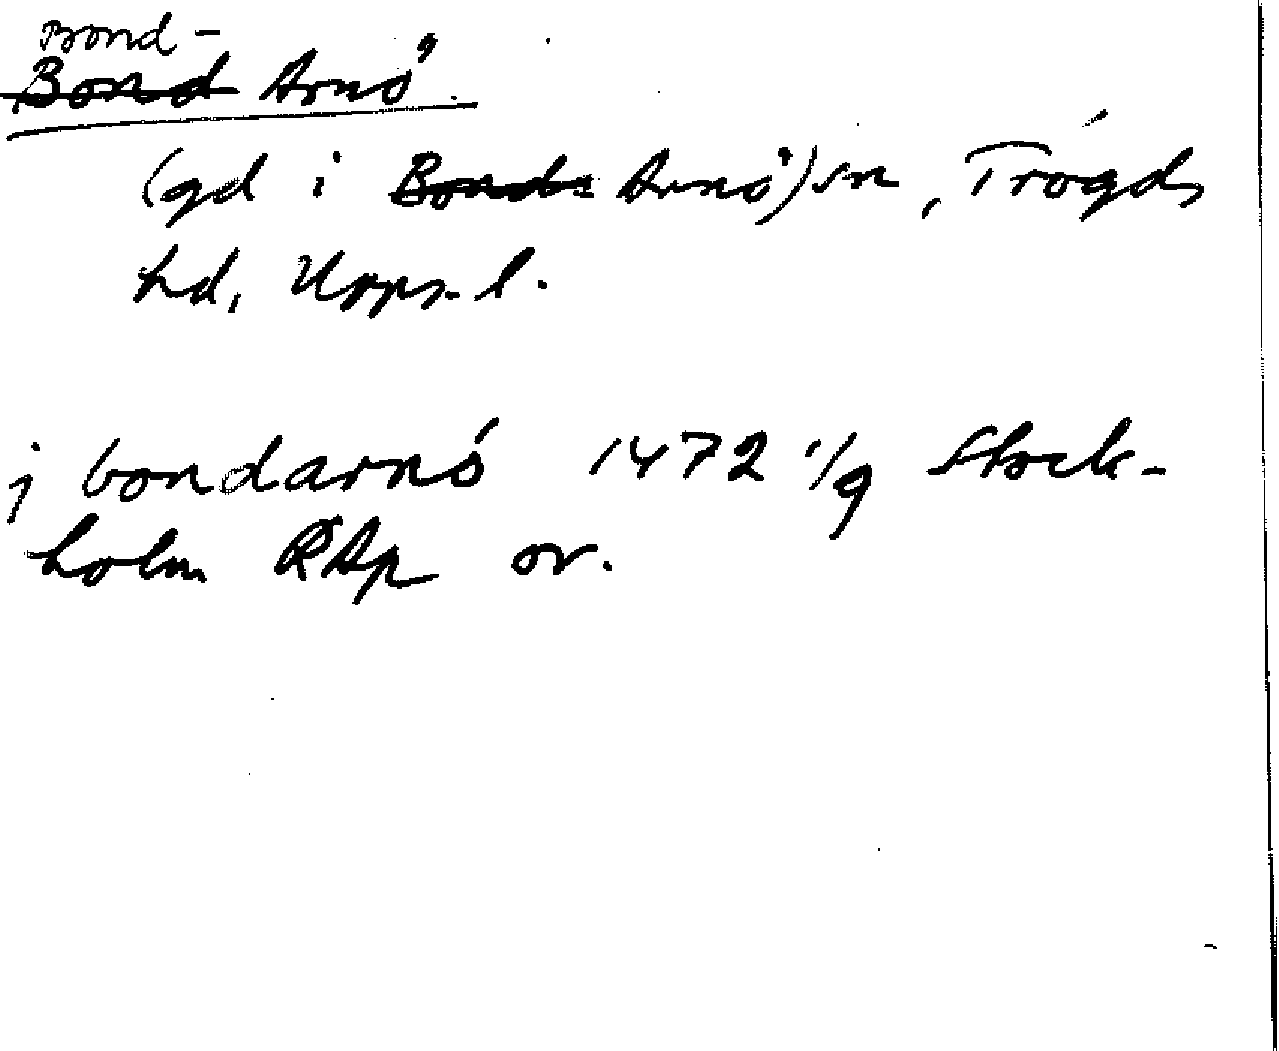 Bond-
Bond Arnö
(gd i Bonds Arnö) sn, Trögds
hd, Upps. l.
j bondarnö 1472 1/9 Stock-
holm RAp or.